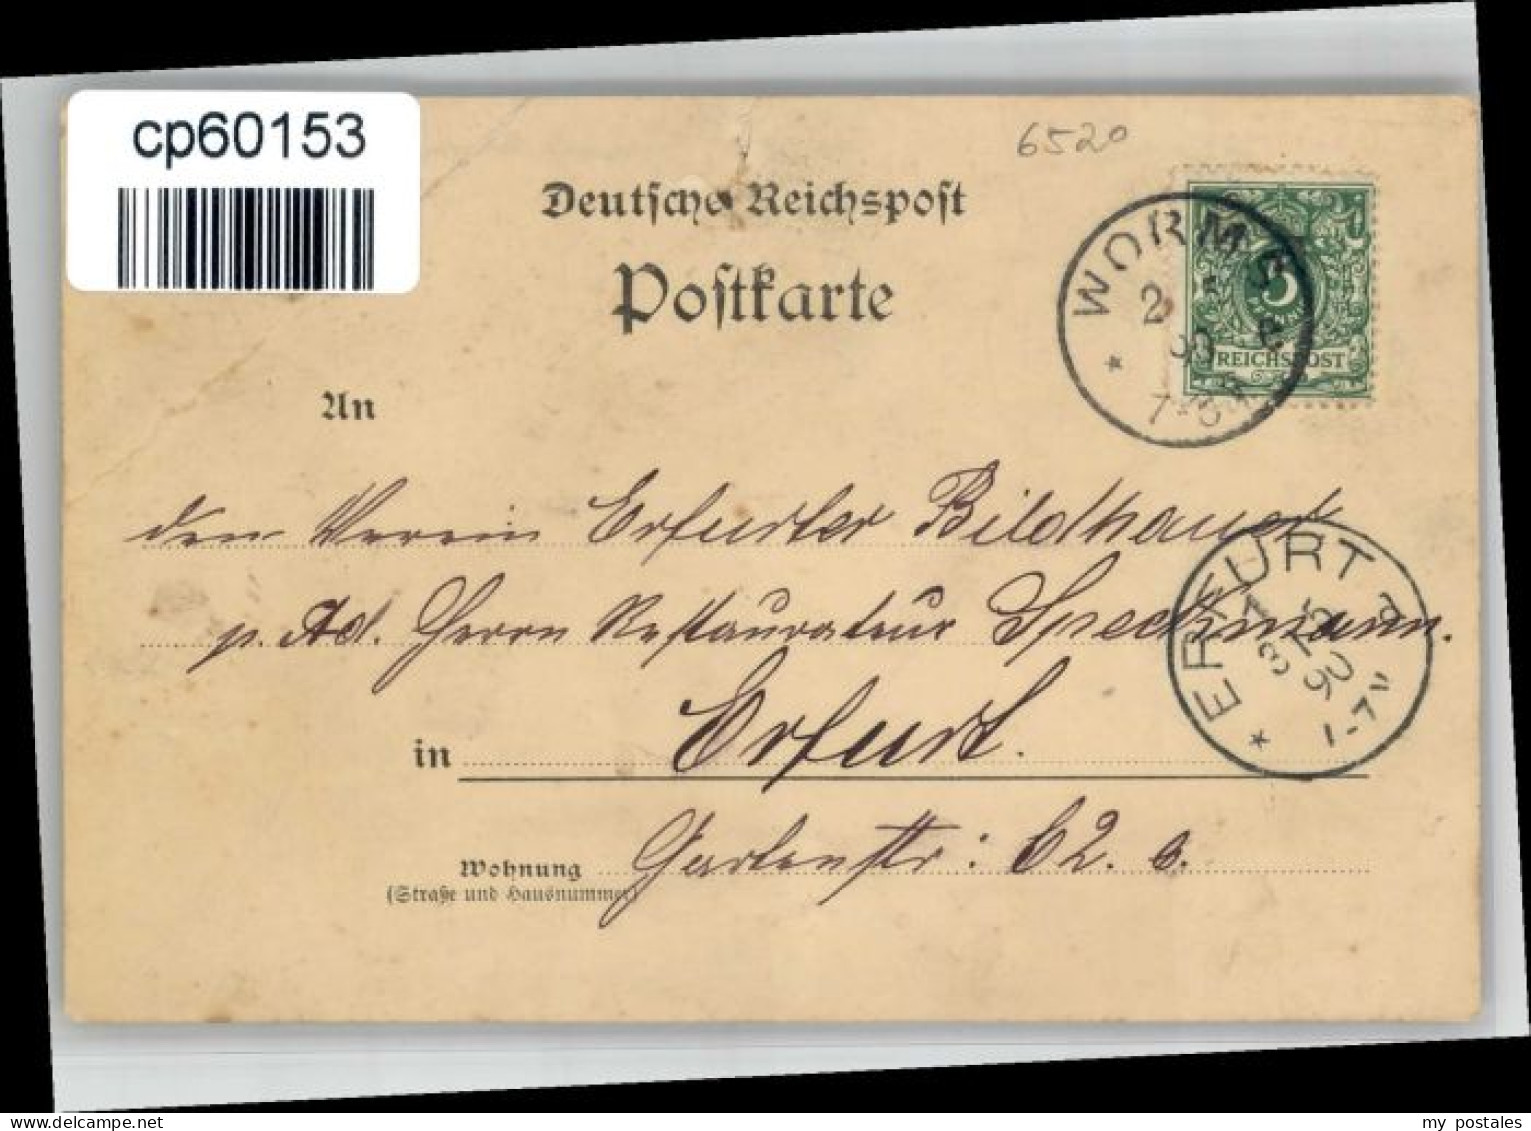 cp60153
6520
Deutsche Reichspost
Postkarte
WORMS
2 5
90
7-8
5
PFENNIG
REICHSPOST
An
den Verein Erfurter Bildhauer
p. Ad. Herrn Restaurateur Speckmann.
ERFURT
1 d
3 5
90
1-7V
in Erfurt.
Wohnung Gartenstr: 62. a.
(Straße und Hausnummer)
my postales